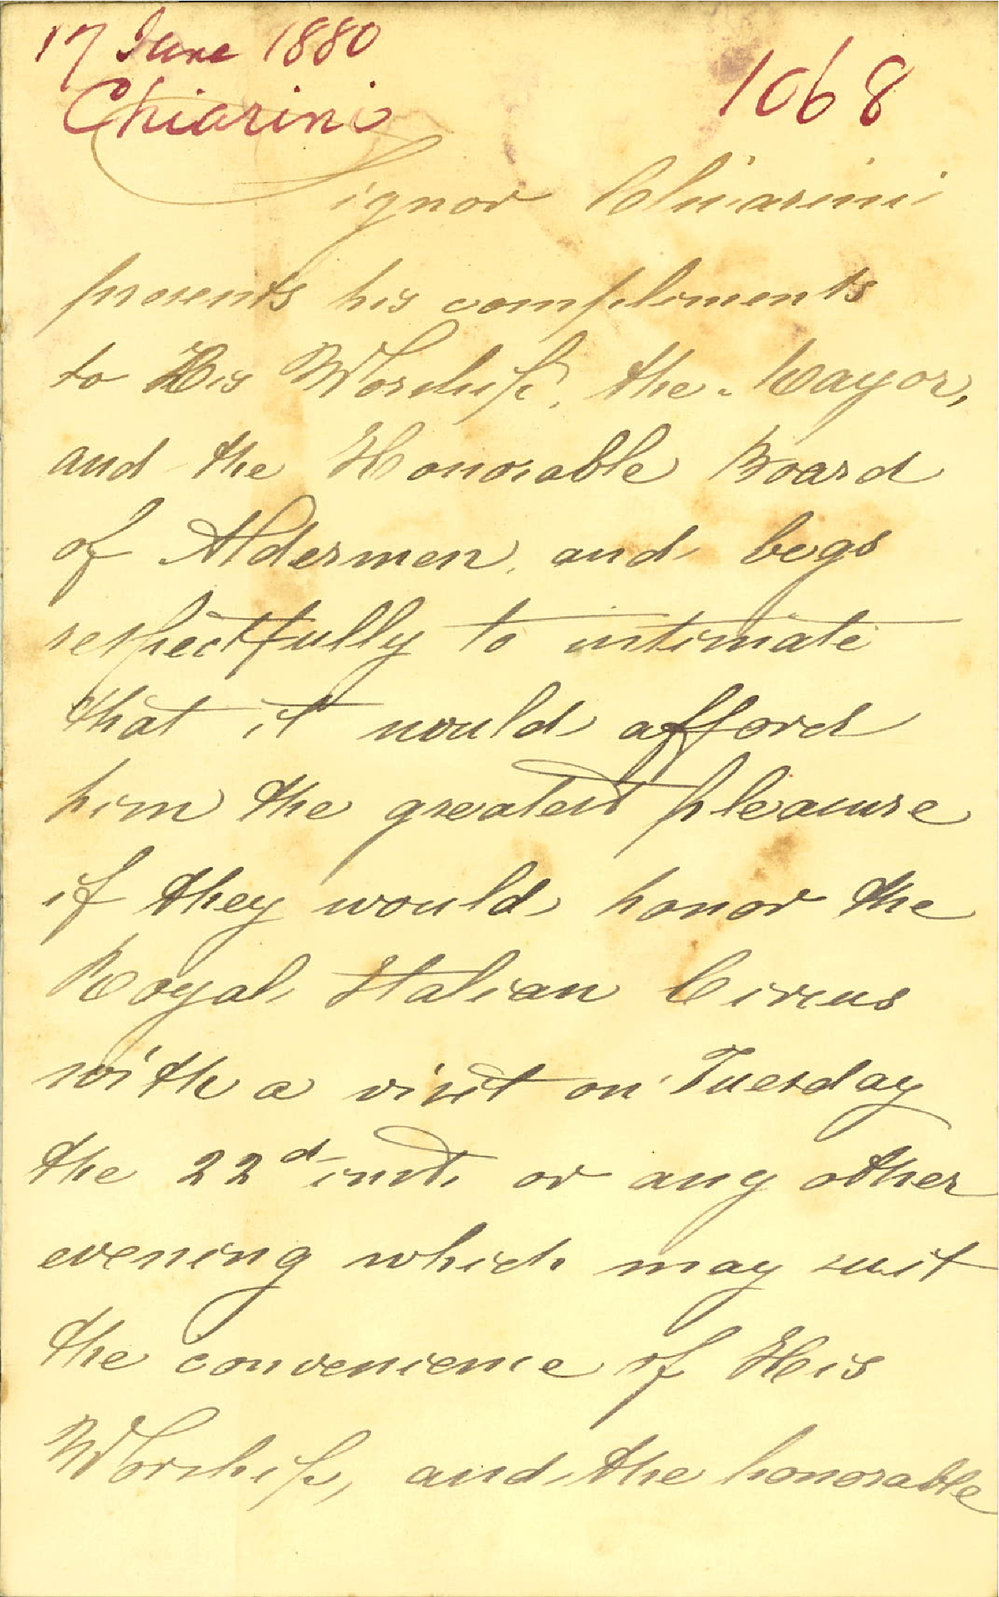 17 June 1880
Chiarini
1068
Signor Chiarini
presents his compliments
to His Worship, the Mayor,
and the Honorable Board
of Aldermen, and begs
respectfully to intimate
that it would afford
him the greatest pleasure
if they would honor the
Royal Italian Circus
with a visit on Tuesday
the 22d inst, or any other
evening which may suit
the convenience of His
Worship, and the honorable